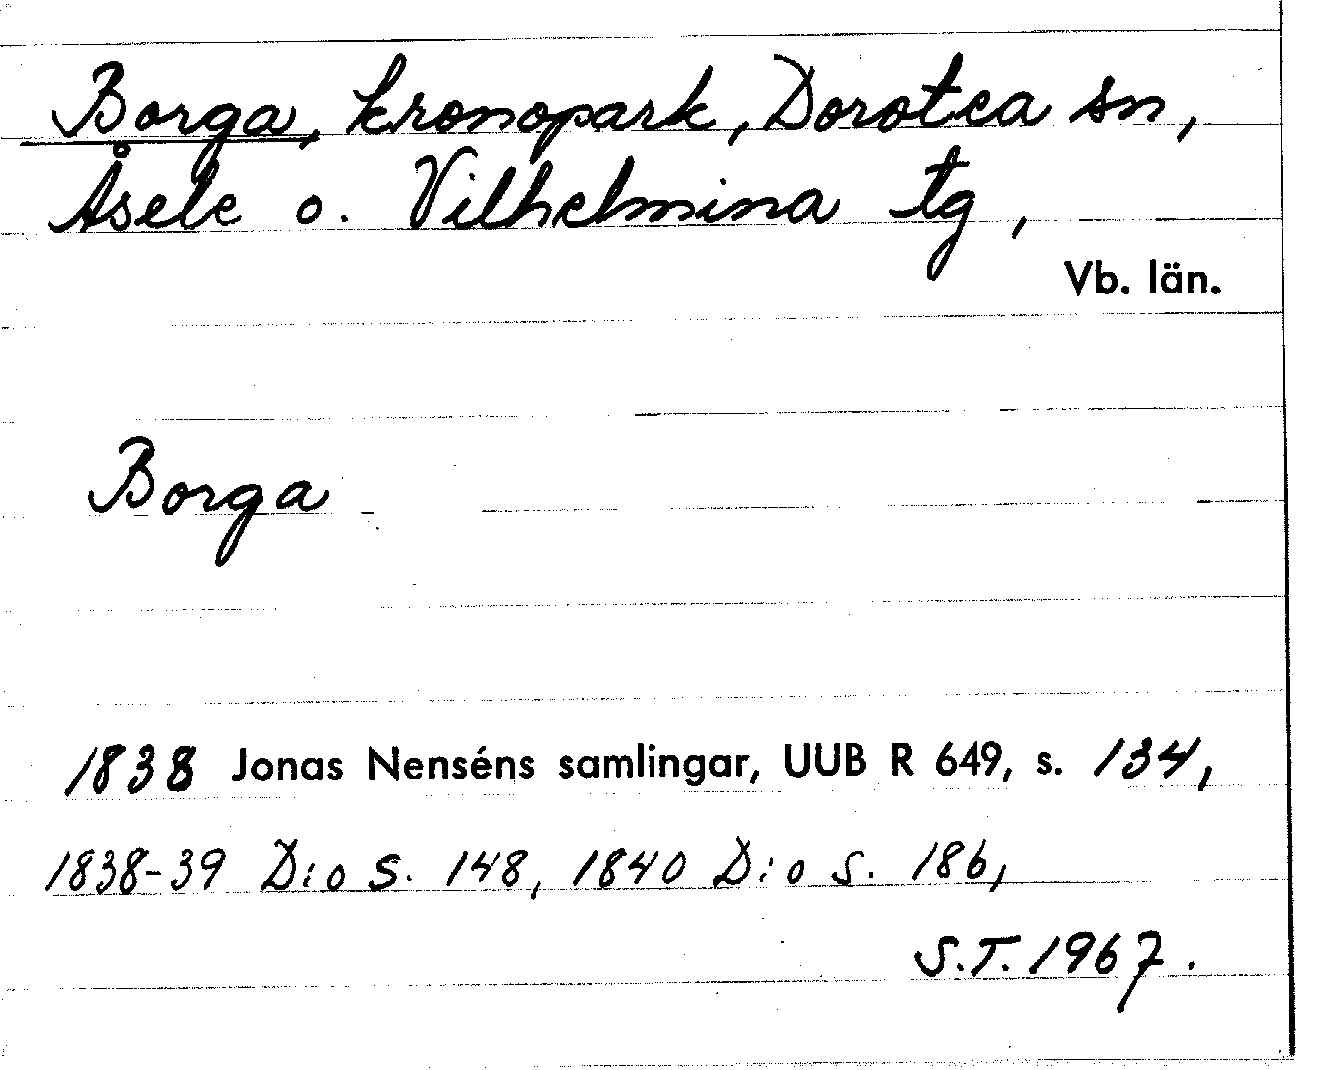 Borga, kronopark, Dorotea sn,
Åsele o. Vilhelmina tg,
Vb. län.
Borga
1838 Jonas Nenséns samlingar, UUB R 649, s. 134,
1838-39 D:o s. 148, 1840 D:o s. 186,
S.T. 1967.